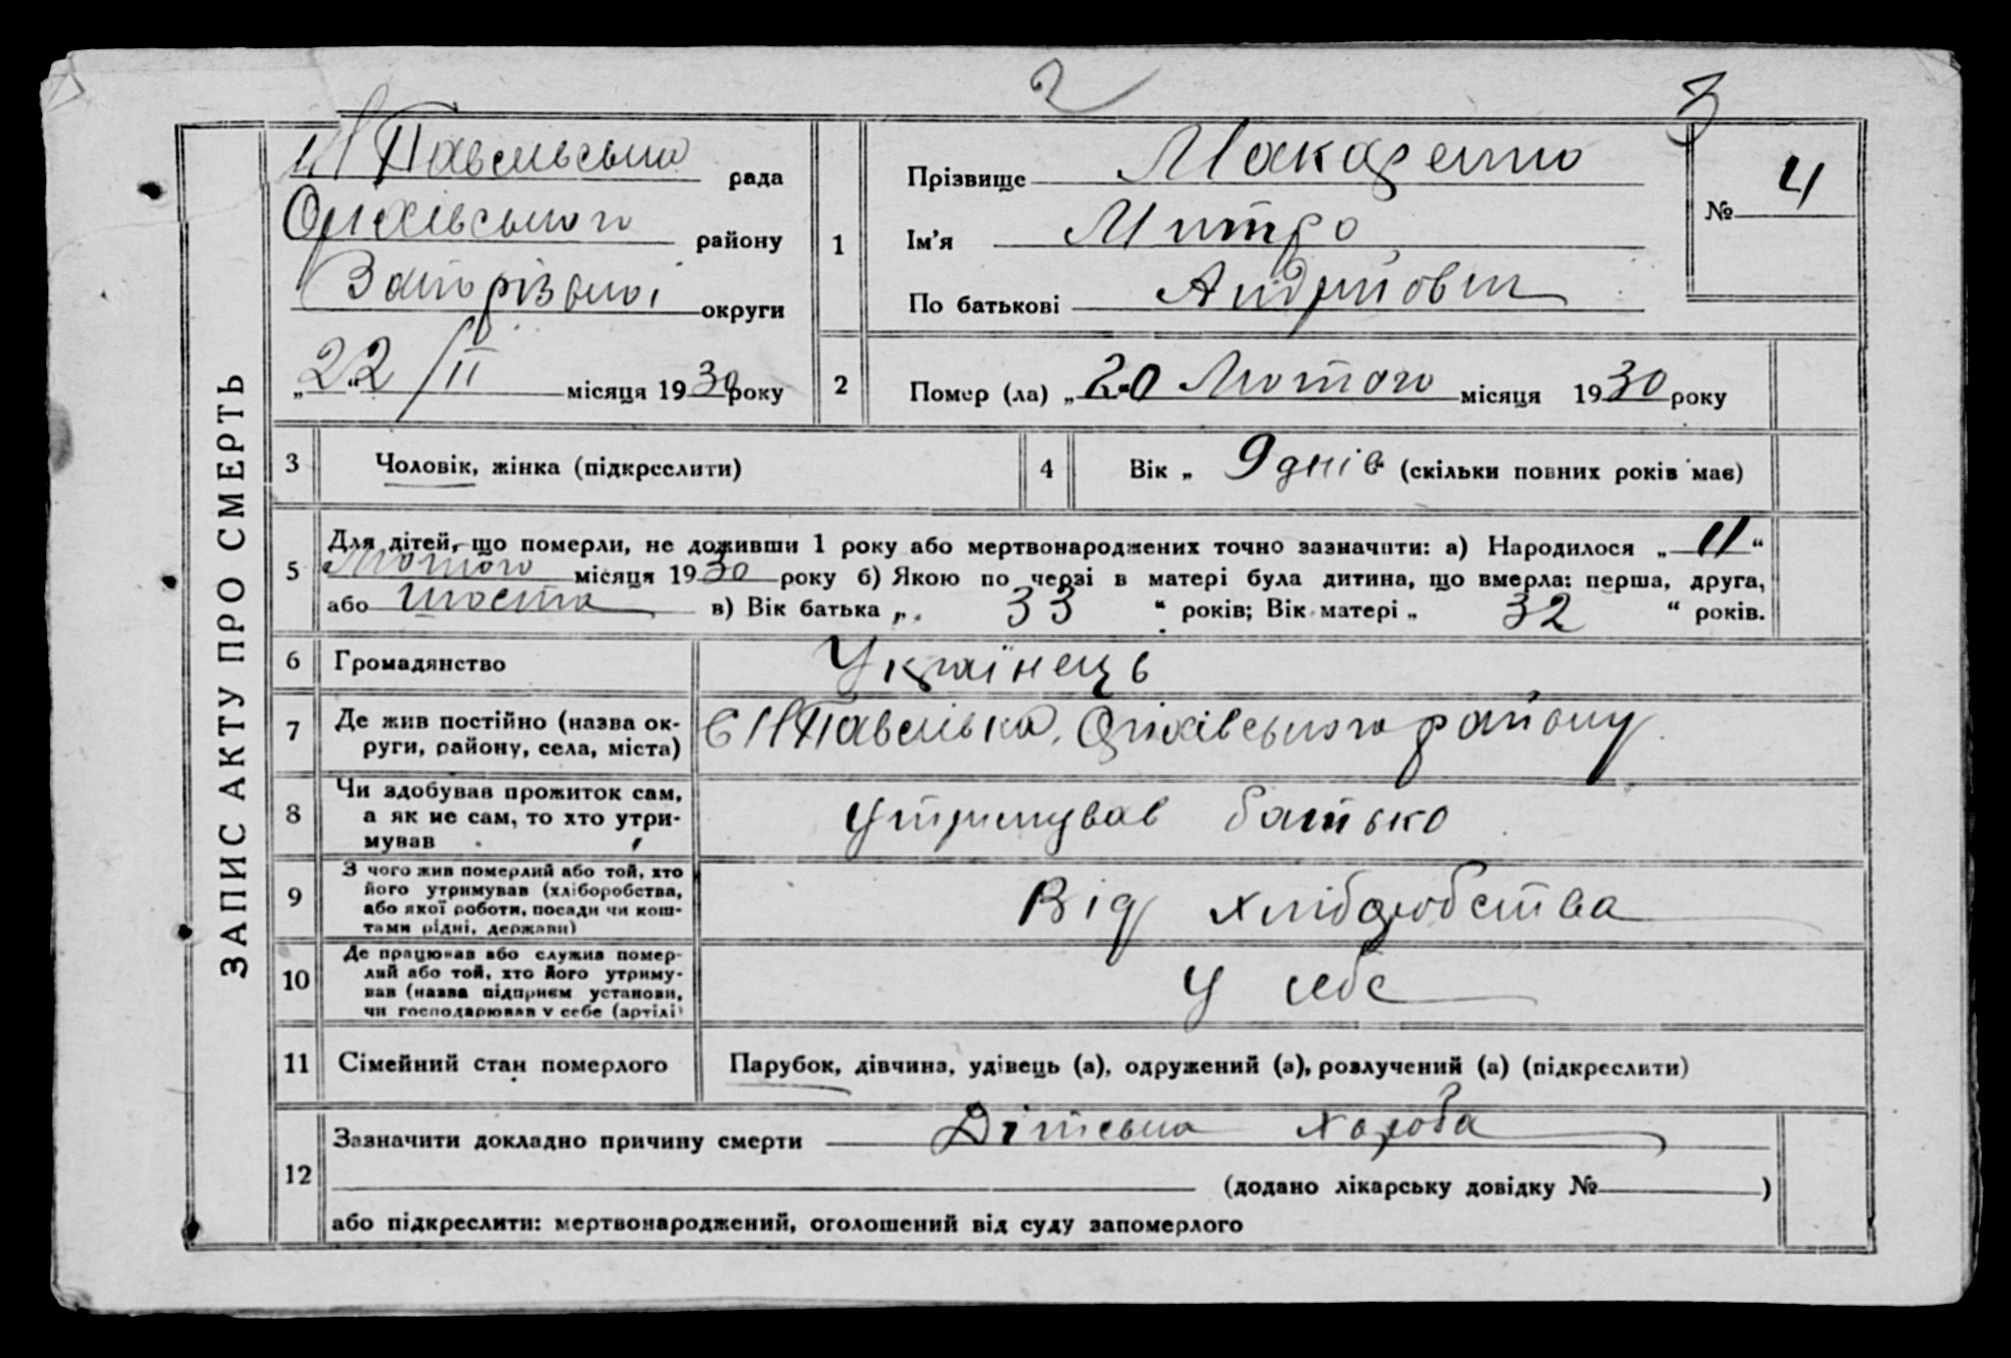 2
3
ЗАПИС АКТУ ПРО СМЕРТЬ
Н Павлівська рада
Оріхівського району
Запорізької округи
„22“/II місяця 1930 року
1
Прізвище Макаренко
Ім'я Митро
По батькові Андрійович
№ 4
2
Помер (ла) „20 Лютого місяця 1930 року
3
Чоловік, жінка (підкреслити)
4
Вік „ 9 днів (скільки повних років має)
5
Для дітей, що померли, не доживши 1 року або мертвонароджених точно зазначити: а) Народилося „11“
Лютого місяця 1930 року б) Якою по черзі в матері була дитина, що вмерла: перша, друга,
або шоста в) Вік батька „ 33 “ років; Вік матері „ 32 “ років.
6
Громадянство
Українець
7
Де жив постійно (назва ок-
руги, району, села, міста)
С Н Павлівка, Оріхівського району
8
Чи здобував прожиток сам,
а як не сам, то хто утри-
мував
Утримував батько
9
З чого жив померлий або той, хто
його утримував (хліборобства,
або якої роботи, посади чи кош-
тами рідні, держави)
Від хліборобства
10
Де працював або служив помер-
лий або той, хто його утриму-
вав (назва підприєм установи,
чи господарював у себе (артілі)
У себе
11
Сімейний стан померлого
Парубок, дівчина, удівець (а), одружений (а), розлучений (а) (підкреслити)
12
Зазначити докладно причину смерти Дітська хороба
(додано лікарську довідку № )
або підкреслити: мертвонароджений, оголошений від суду запомерлого